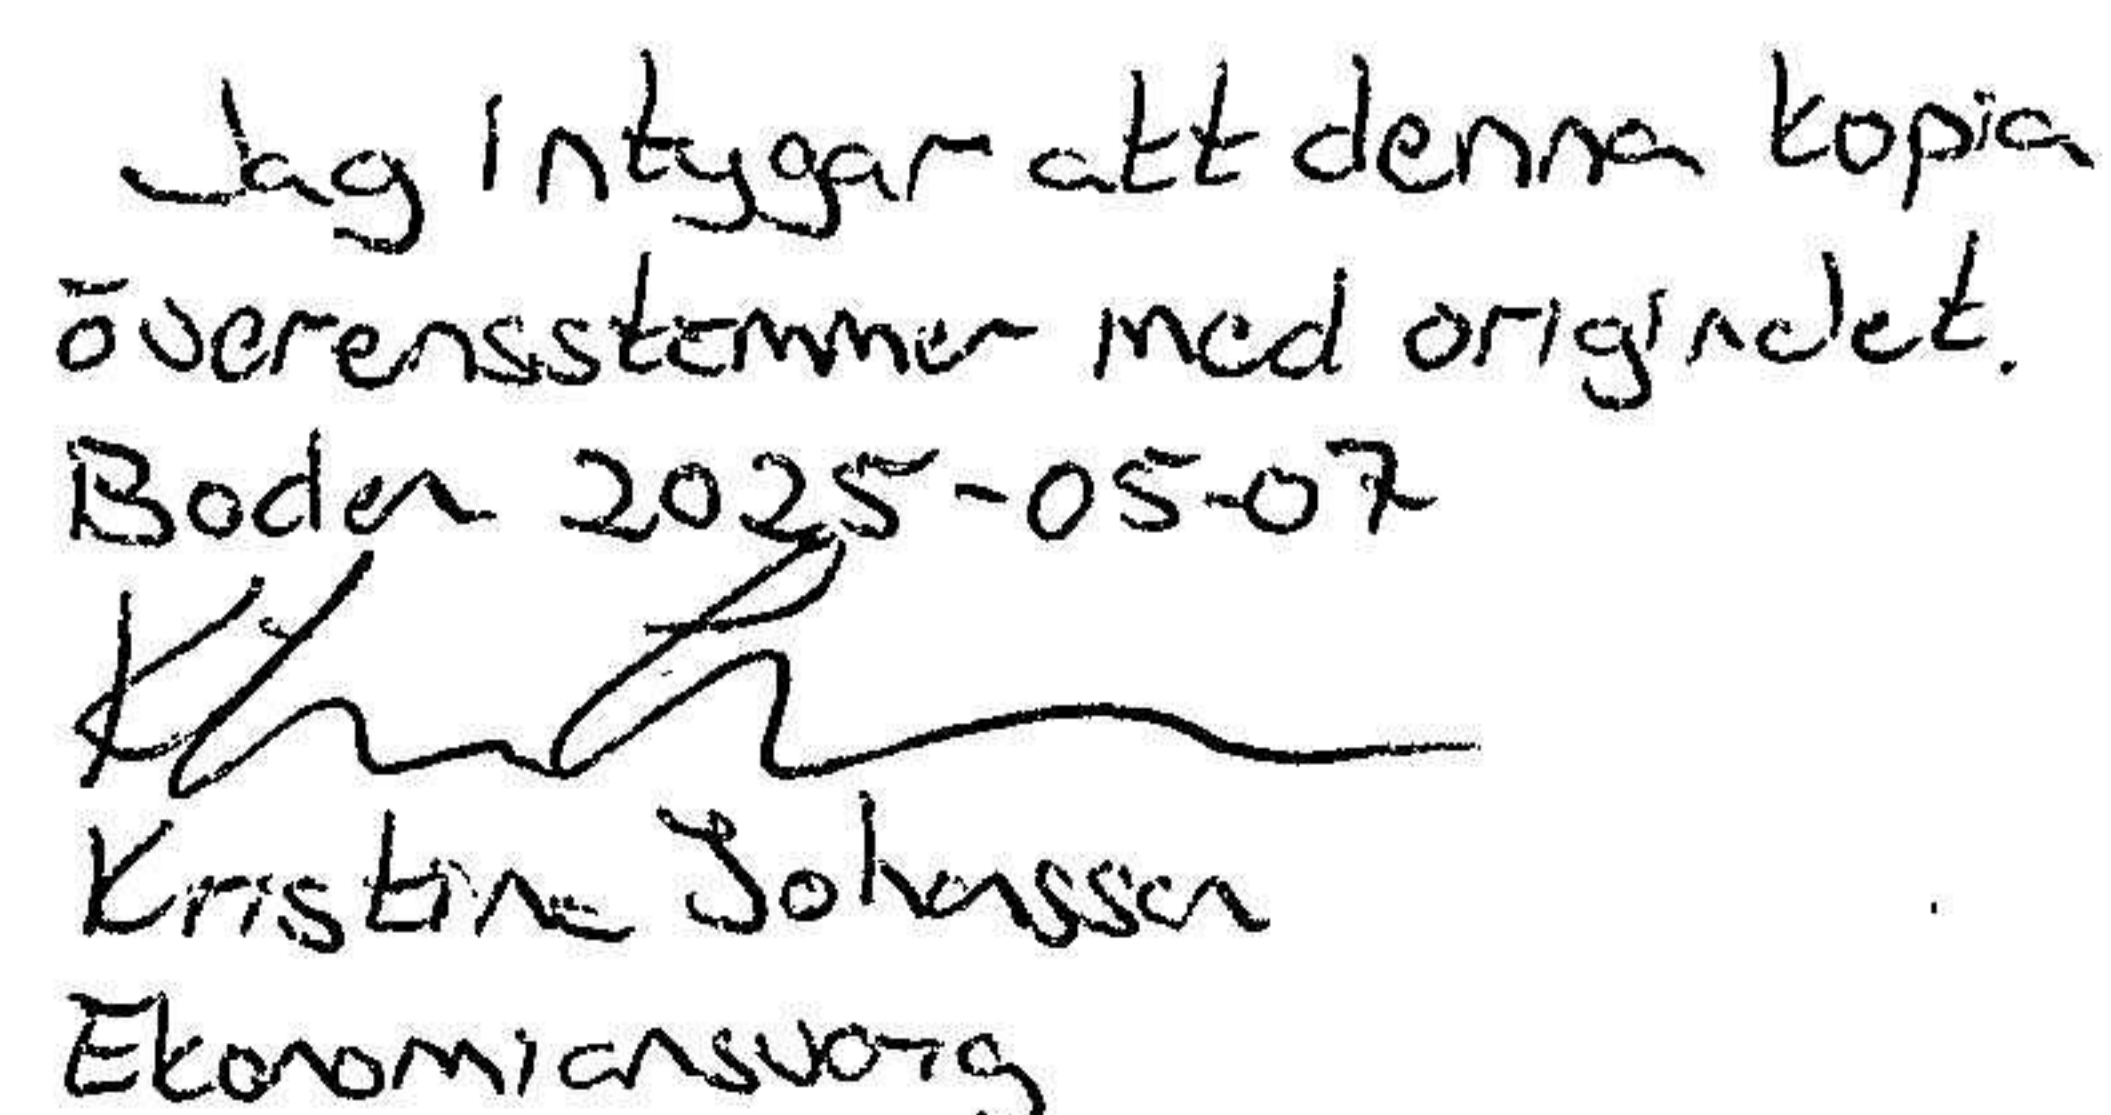 Jag intygar att denna kopia
överensstemmer med originalet.
Boden 2025-05-07
Kristine Johansson
Ekonomiansvarig